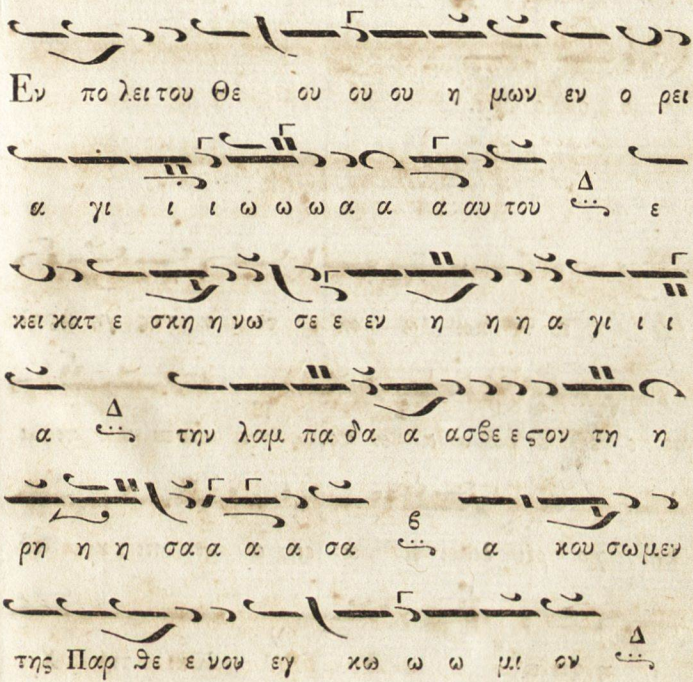 Εν πο λει του Θε ου ου ου η μων εν ο ρει
α γι ι ι ω ω ω α α α αυ του Δ ε
κει κατ ε σκη η νω σε ε εν η η η α γι ι ι
α Δ την λαμ πα δα α ασβε ε ϛον τη η
ρη η η σα α α α σα β α κου σω μεν
της Παρ θε ε νου εγ κω ω ω μι ον Δ